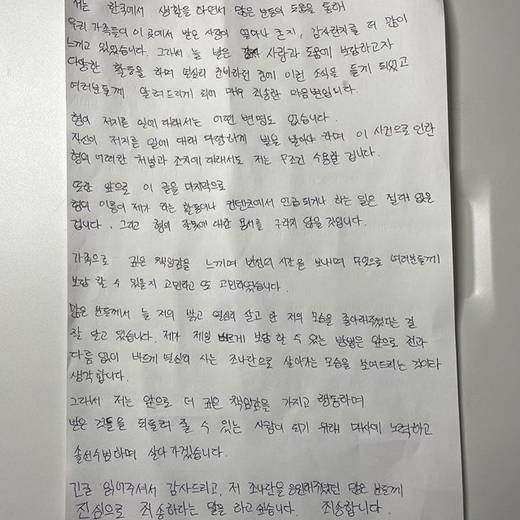 저는 한국에서 생활을 하면서 많은 분들의 도움을 통해
우리 가족들이 이 곳에서 받은 사랑이 얼마나 큰지, 감사한지를 더 많이
느끼고 있었습니다. 그래서 늘 받은 사랑과 도움에 보답하고자
다양한 활동을 하며 열심히 준비하던 중에 이런 소식을 듣게 되었고
여러분들께 알려드리게 되어 매우 죄송한 마음뿐입니다.
형이 저지른 일에 대해서는 어떤 변명도 없습니다.
자신이 저지른 일에 대해 마땅하게 벌을 받아야 하며 이 사건으로 인한
형의 어떠한 처벌과 조치에 대해서도 저는 무조건 수용할 겁니다.
또한 앞으로 이 글을 마지막으로
형의 이름이 제가 하는 활동이나 컨텐츠에서 언급되거나 하는 일은 절대 없을
겁니다. 그리고 형의 행동에 대한 용서를 구하지 않을 것입니다.
가족으로 깊은 책임감을 느끼며 반성의 시간을 보내며 무엇으로 여러분들께
보답 할 수 있을지 고민하고 또 고민하였습니다.
많은 분들께서 늘 저의 밝고 열심히 살고 한 저의 모습을 좋아해주셨다는 걸
잘 알고 있습니다. 제가 제일 바르게 보답 할 수 있는 방법은 앞으로 전과
다름 없이 바르게 열심히 사는 조나단으로 살아가는 모습을 보여드리는 것이라
생각합니다.
그래서 저는 앞으로 더 깊은 책임감을 가지고 행동하며
받은 것들을 되돌려 줄 수 있는 사람이 되기 위해 매사에 노력하고
솔선수범하며 살아가겠습니다.
긴글 읽어주셔서 감사드리고, 저 조나단을 응원해주셨던 많은 분들께
진심으로 죄송하다는 말을 하고 싶습니다. 죄송합니다.